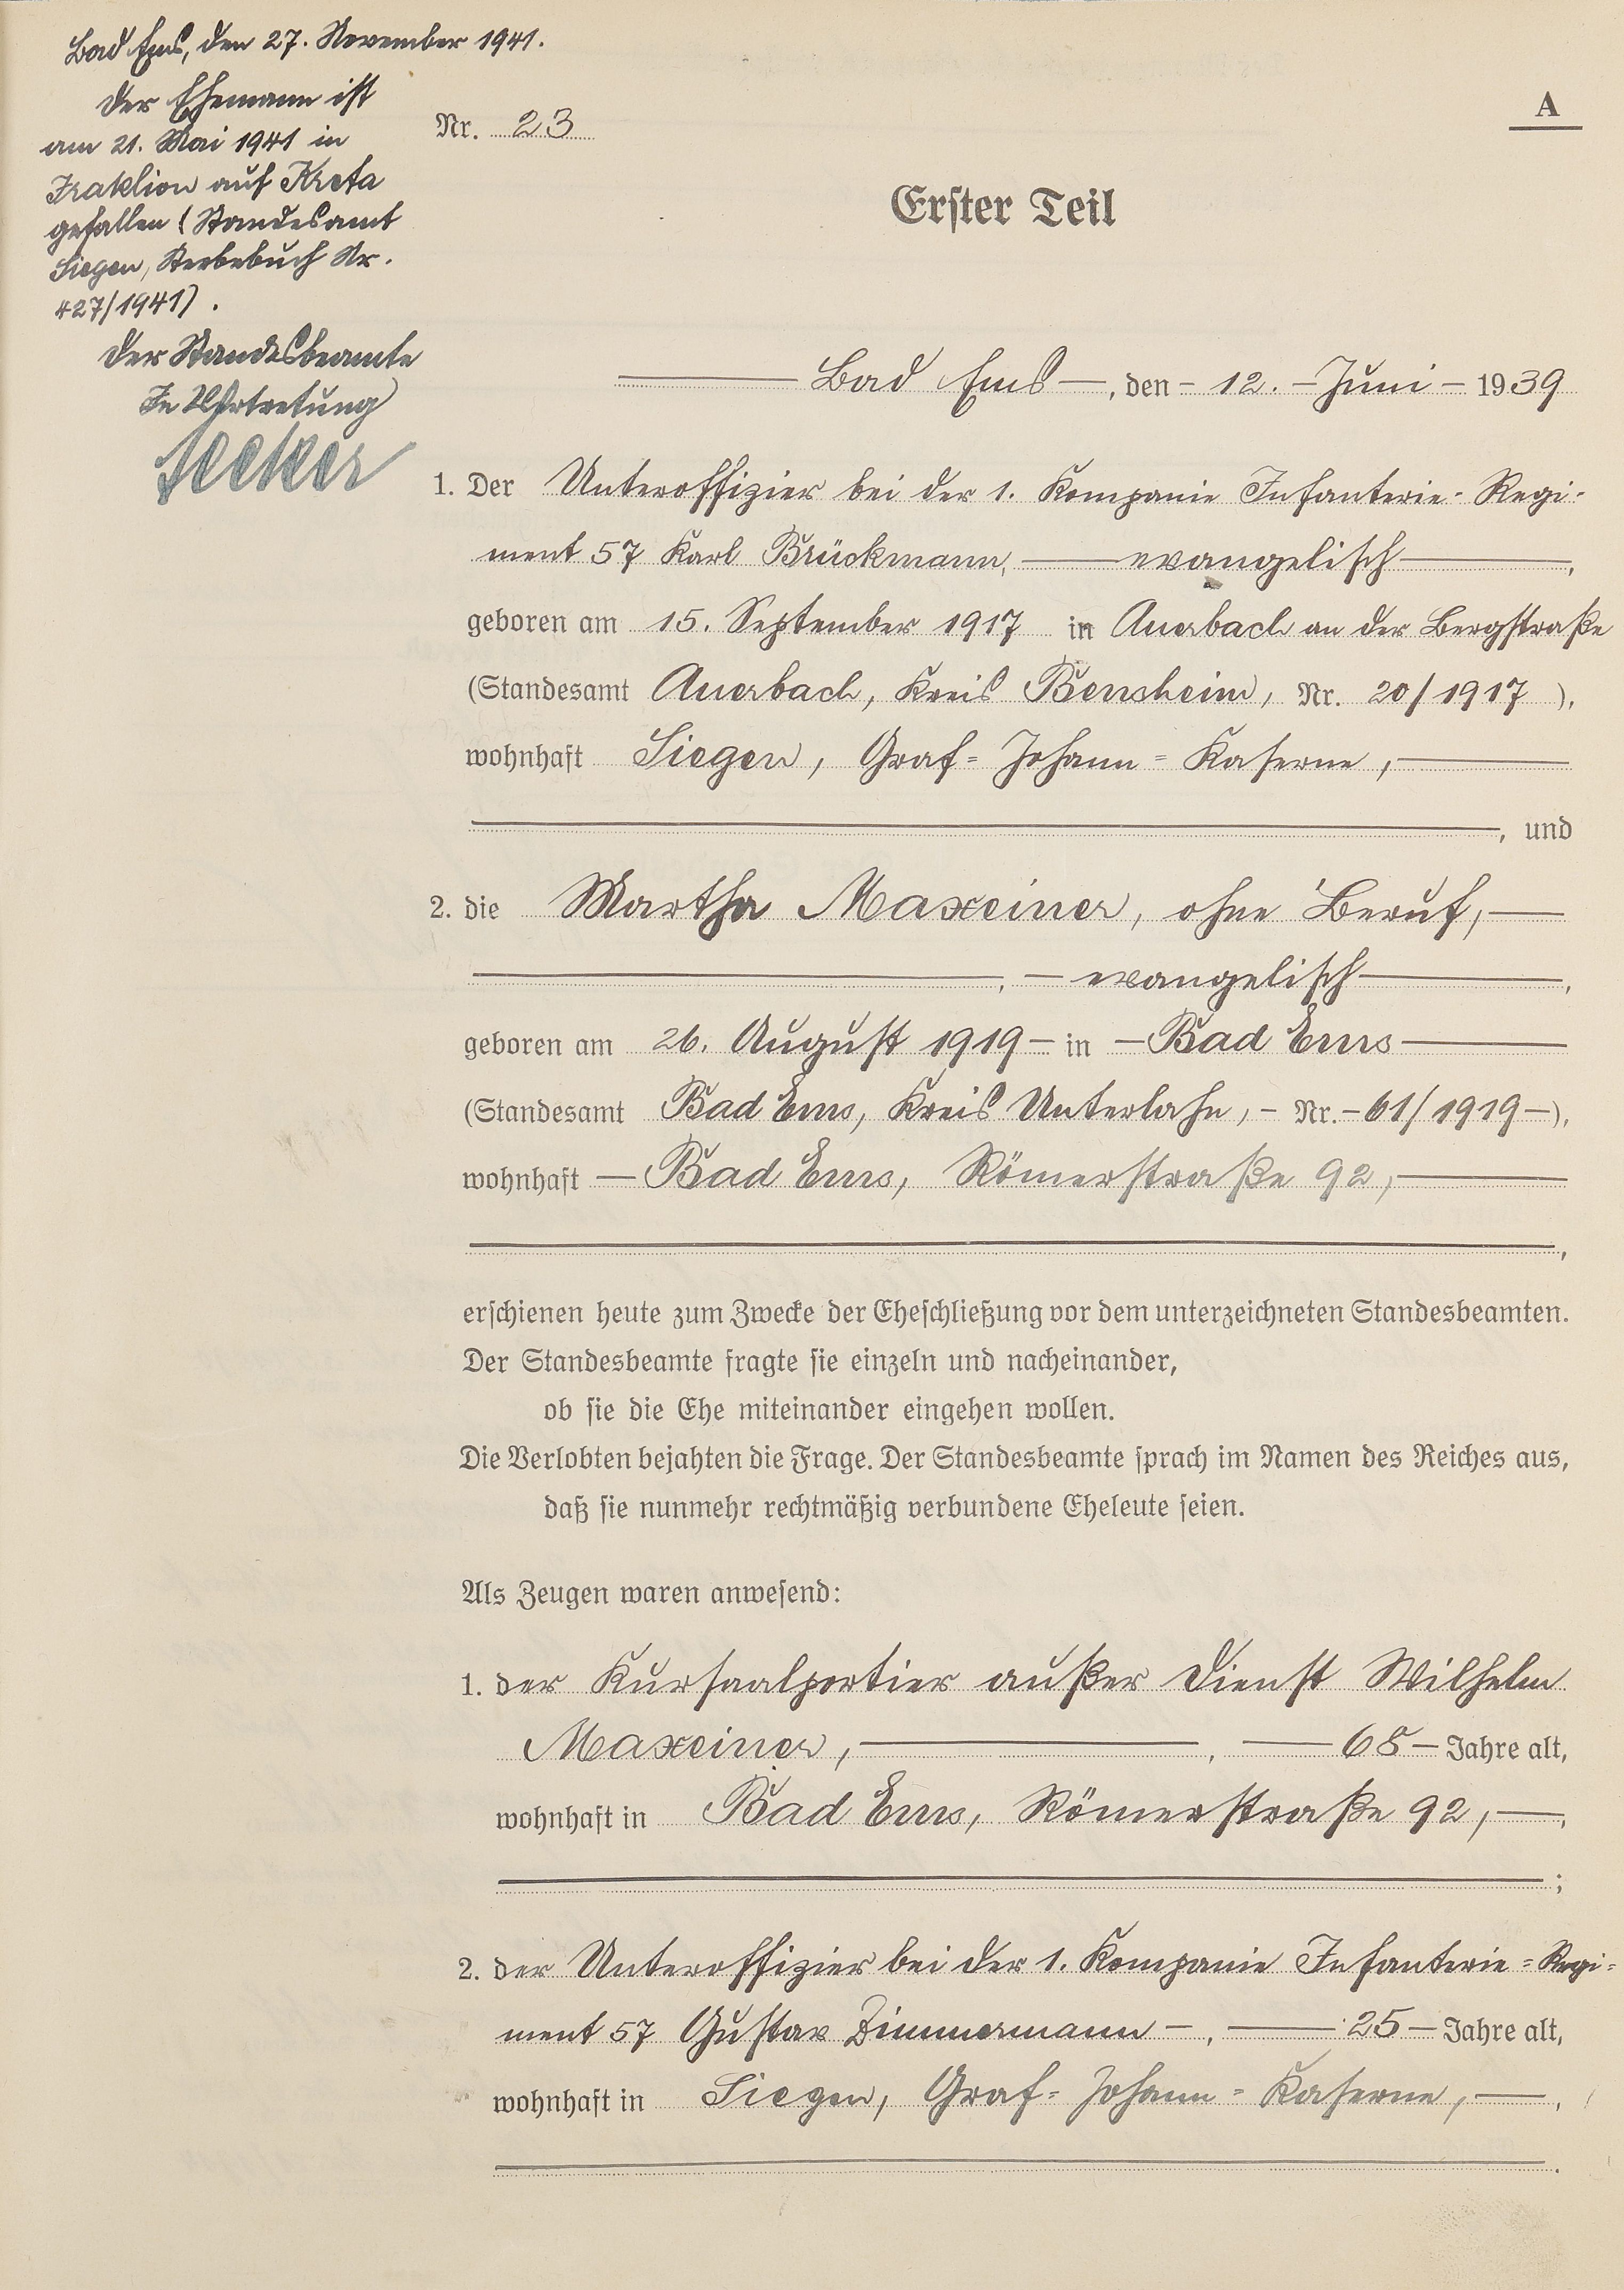 Bad Ems, den 27. November 1941.
Der Ehemann ist
am 21. Mai 1941 in
Iraklion auf Kreta
gefallen (Standesamt
Siegen, Sterbebuch Nr.
427/1941).
Der Standesbeamte
In Vertretung
A
Nr. 23
Erster Teil
Bad Ems, den 12. Juni 1939
1. Der Unteroffizier bei der 1. Kompanie Infanterie-Regi-
ment 57 Karl Brückmann, evangelisch,
geboren am 15. September 1917 in Auerbach an der Bergstraße
(Standesamt Auerbach, Kreis Bensheim, Nr. 20/1917),
wohnhaft Siegen, Graf-Johann-Kaserne,
, und
2. die Martha Maxeiner, ohne Beruf,
, evangelisch,
geboren am 26. August 1919 in Bad Ems
(Standesamt Bad Ems, Kreis Unterlahn, Nr. 61/1919),
wohnhaft Bad Ems, Römerstraße 92,
,
erschienen heute zum Zwecke der Eheschließung vor dem unterzeichneten Standesbeamten.
Der Standesbeamte fragte sie einzeln und nacheinander,
ob sie die Ehe miteinander eingehen wollen.
Die Verlobten bejahten die Frage. Der Standesbeamte sprach im Namen des Reiches aus,
daß sie nunmehr rechtmäßig verbundene Eheleute seien.
Als Zeugen waren anwesend:
1. der Kursaalportier außer Dienst Wilhelm
Maxeiner, , 68 Jahre alt,
wohnhaft in Bad Ems, Römerstraße 92, ,
;
2. der Unteroffizier bei der 1. Kompanie Infanterie-Regi-
ment 57 Gustav Zimmermann, 25 Jahre alt,
wohnhaft in Siegen, Graf-Johann-Kaserne, ,
.